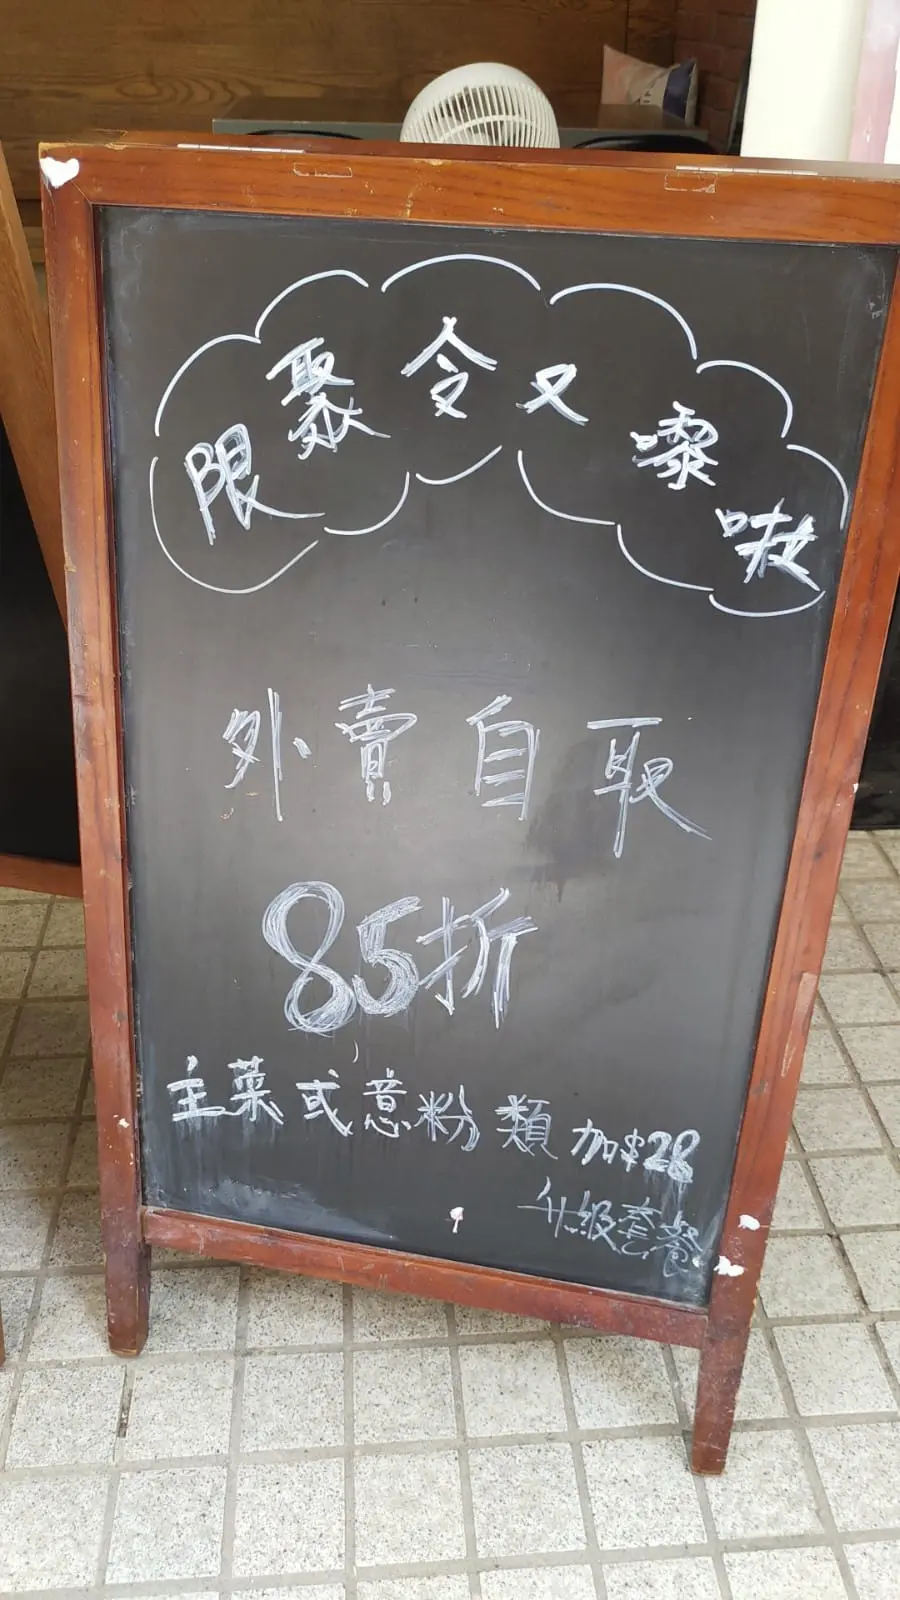 限聚令又嚟啦
外賣自取
85折
主菜或意粉類加$28
升級套餐